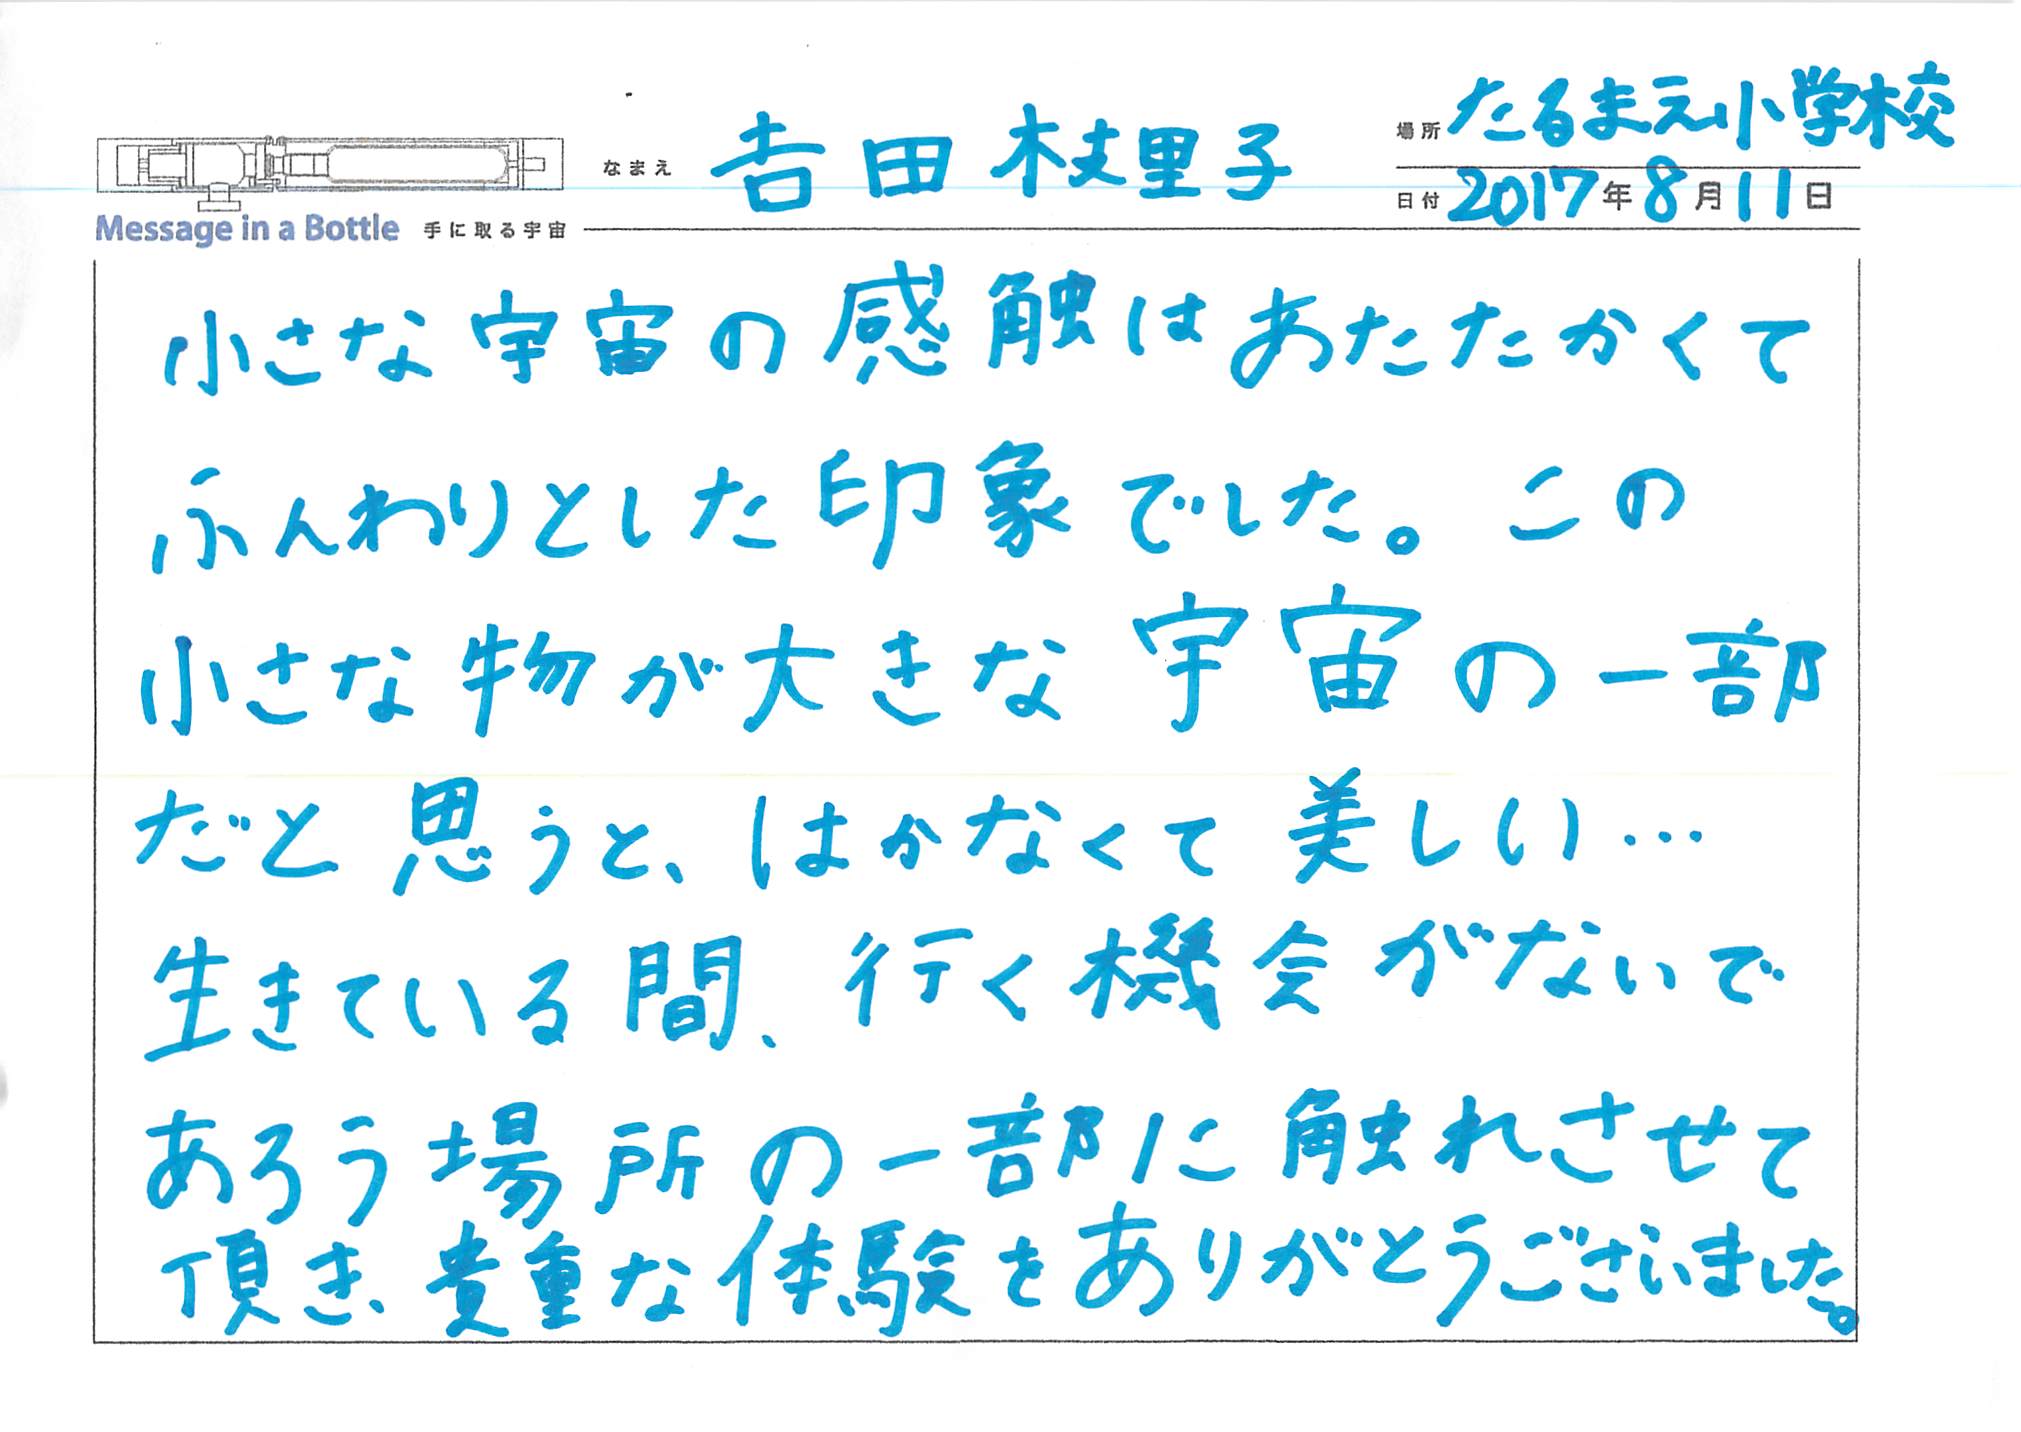 なまえ 吉田 枝里子
場所 たるまえ小学校
日付 2017年8月11日
Message in a Bottle 手に取る宇宙
小さな宇宙の感触はあたたかくて
ふんわりとした印象でした。この
小さな物が大きな宇宙の一部
だと思うと、はかなくて美しい…
生きている間、行く機会がないで
あろう場所の一部に触れさせて
頂き、貴重な体験をありがとうございました。